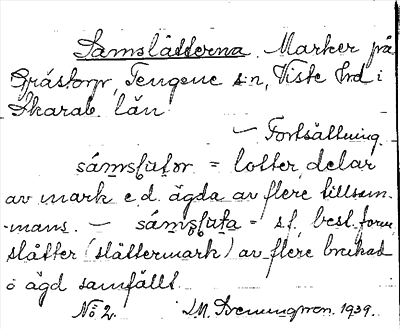 Samslåtterna. Marker på
Grästorp, Tengene s:n, Viste hrd i
Skarab. län
— Fortsättning.
= lotter, delar
av mark e.d. ägda av flere tillsam-
mans. — = s.f. best. form,
slåtter (slåttermark) av flere brukad
o ägd samfällt.
No 2. 1939.